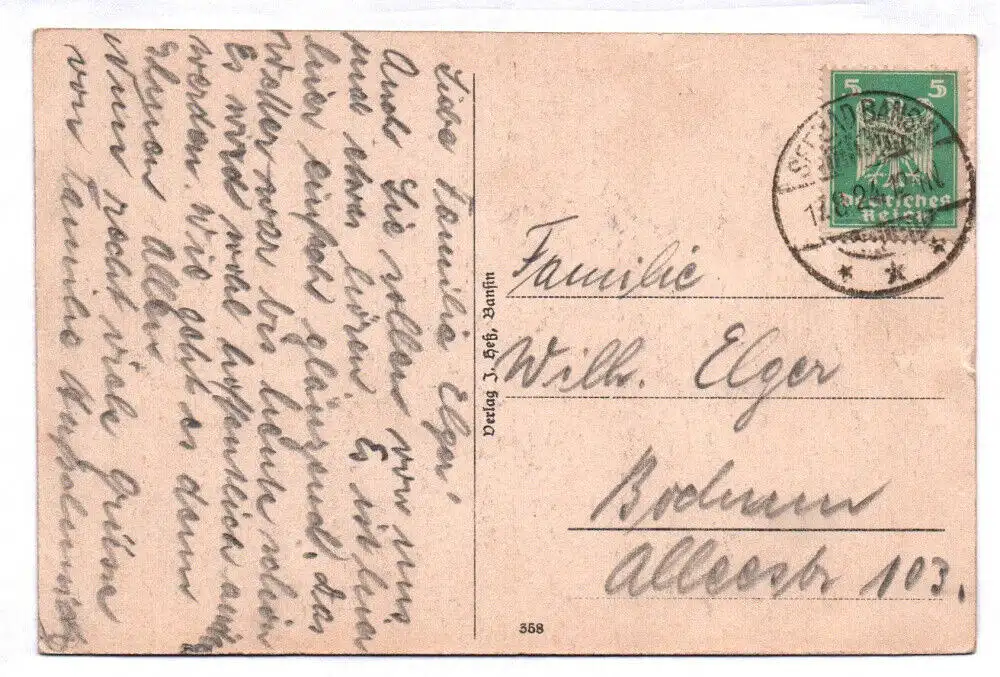 Liebe Familie Elger!
Auch Sie sollen von uns
und etwas hören. Es ist
hier einfach glänzend. Das
Wetter war bis heute schön
Es wird wohl hoffentlich auch
werden. Wie geht es denn
Ihnen Allen
Nun recht viele Grüße
von Familie
Verlag J. Heß, Bansin
358
5 5
Deutsches
Reich
SEEBAD BANSIN
Familie
Wilh. Elger
Bochum
Alleestr 103.